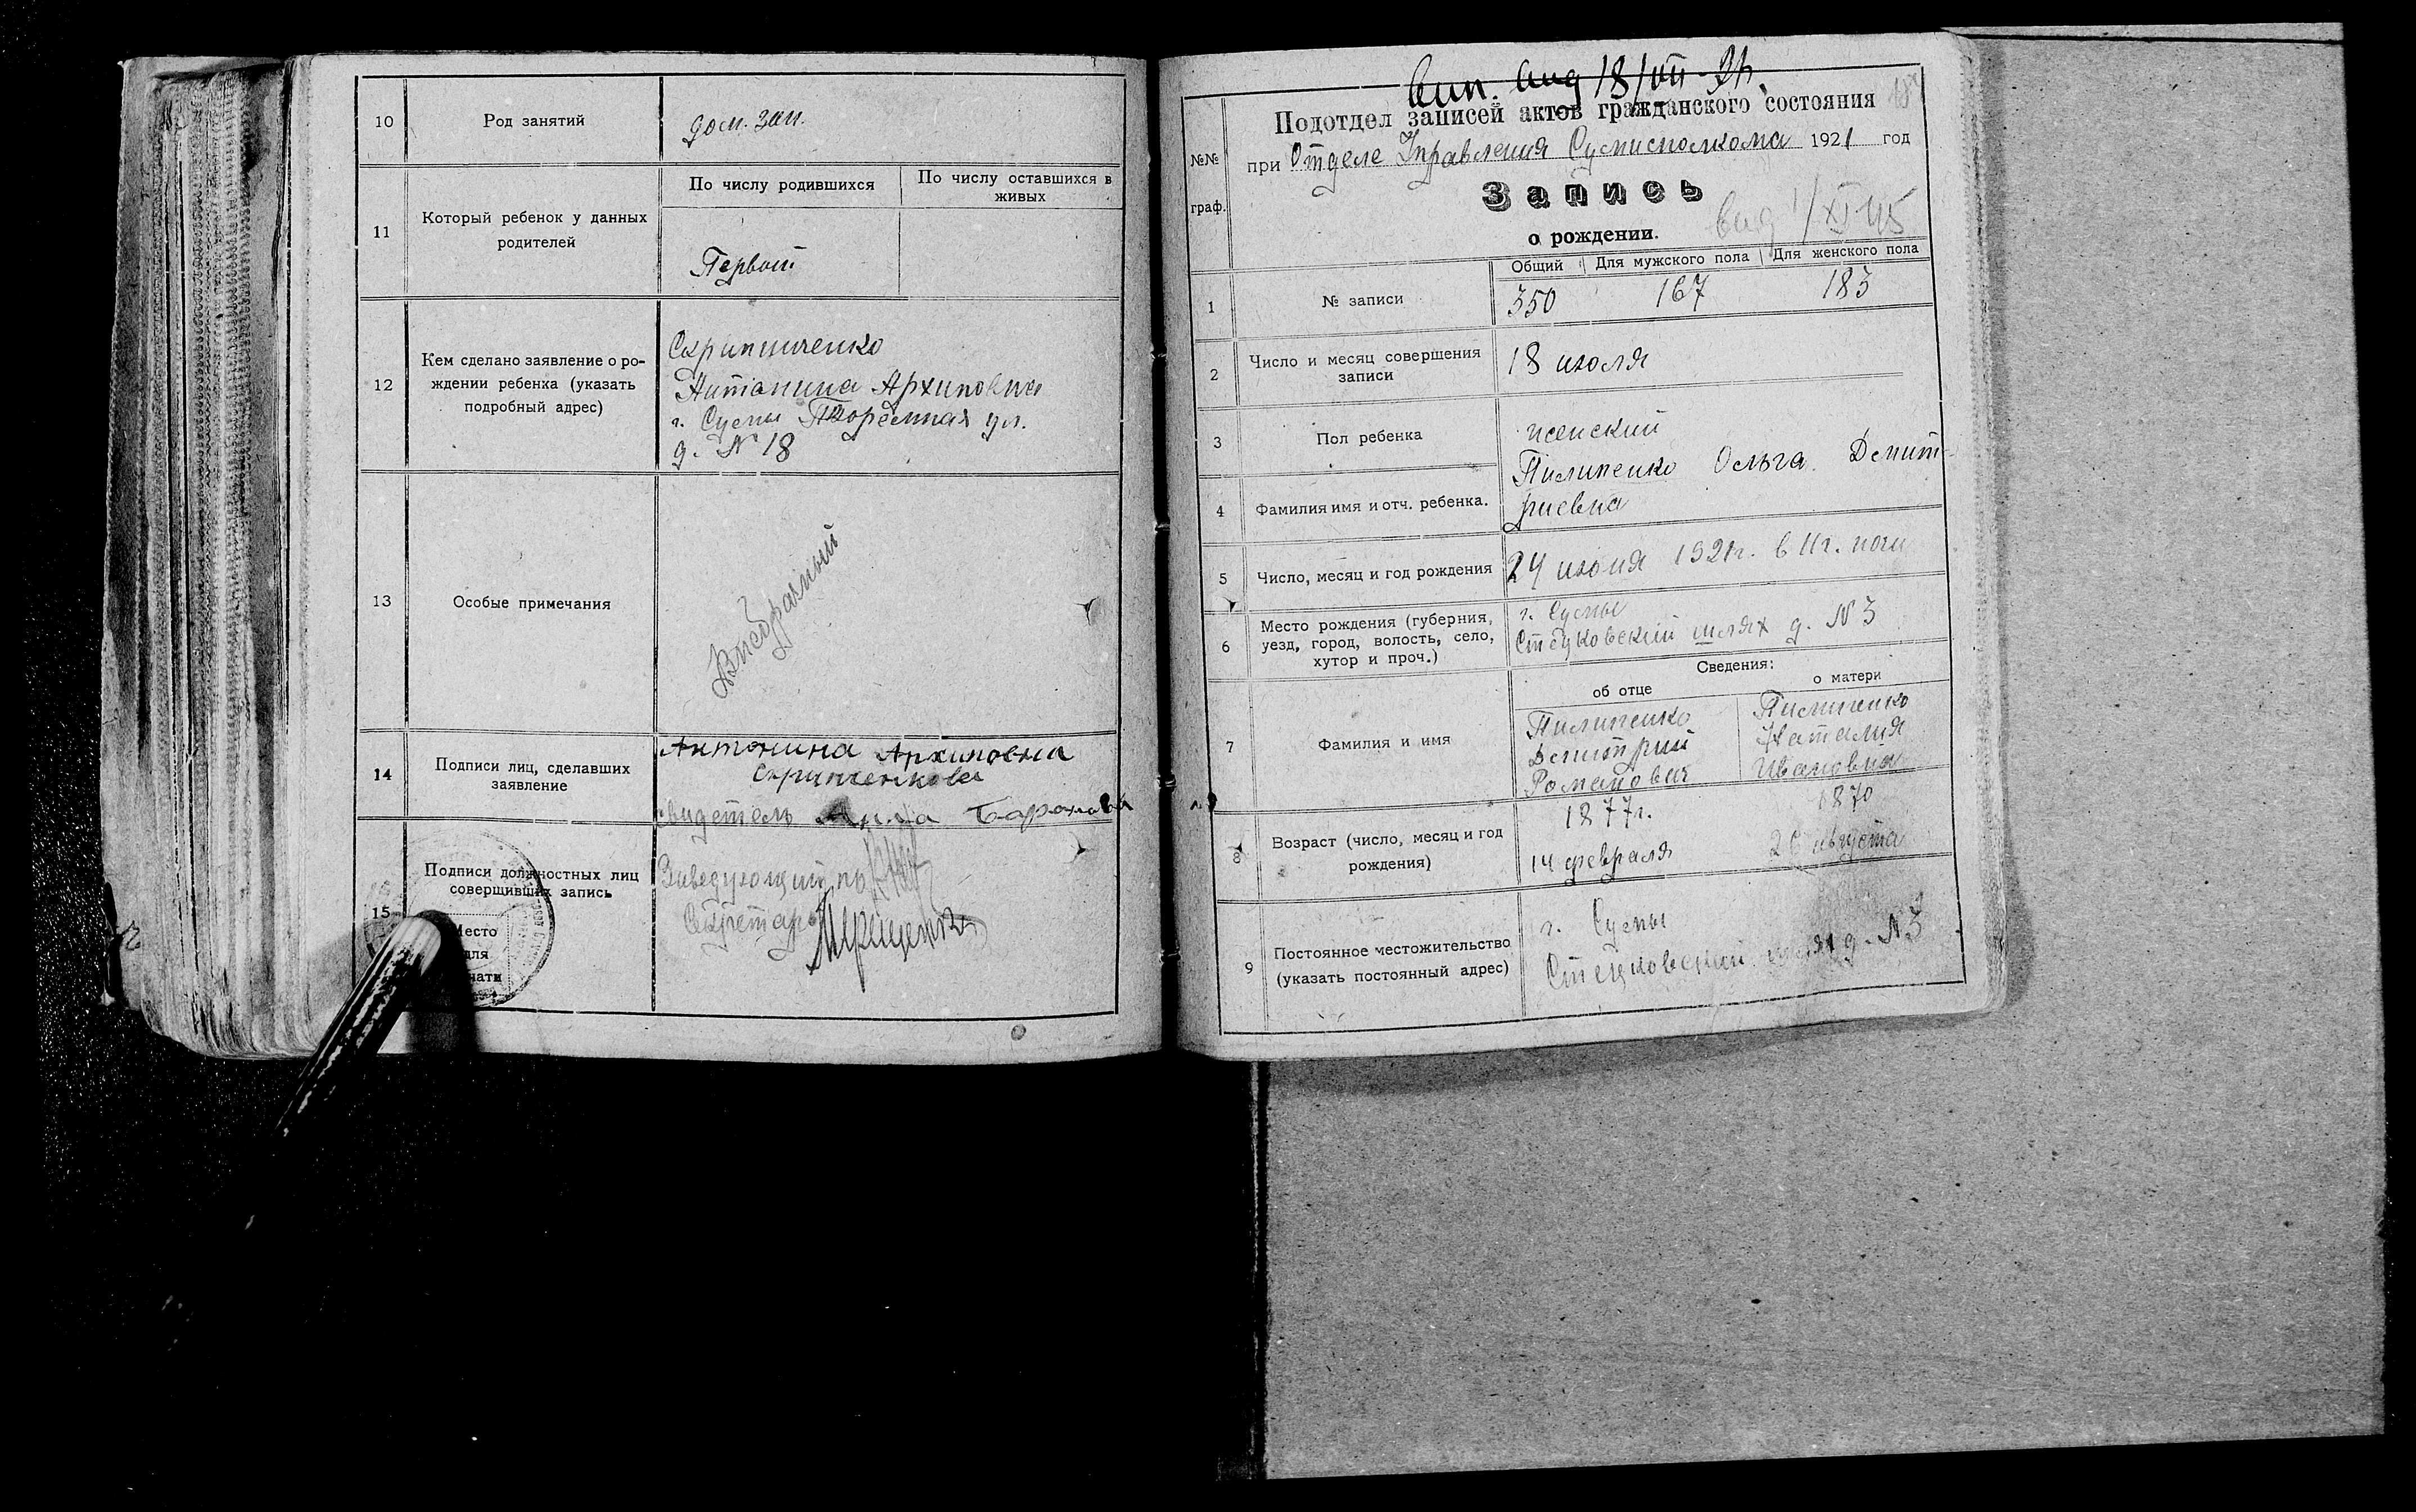 10
Род занятий
дом. зан.
11
Который ребенок у данных
родителей
По числу родившихся
По числу оставшихся в
живых
Первый
12
Кем сделано заявление о ро-
ждении ребенка (указать
подробный адрес)
Скрипниченко
Антонина Архиповна
г. Сумы Тюремная ул.
д. № 18
13
Особые примечания
Внебрачный
14
Подписи лиц, сделавших
заявление
Антонина Архиповна
свидетель Анна
15
Подписи должностных лиц
совершивших запись
Место
для
Заведующий
Секретарь
вып. выд 18/VII-21
Подотдел записей актов гражданского состояния
при Отделе Управления Сумисполкома 1921 год
№№
граф.
Запись
о рождении.
выд 1/XI 45
Общий
Для мужского пола
Для женского пола
1
№ записи
350
167
183
2
Число и месяц совершения
записи
18 июля
3
Пол ребенка
женский
4
Фамилия имя и отч. ребенка.
Пилипенко Ольга Дмит-
риевна
5
Число, месяц и год рождения
24 июня 1921г. в 11ч. ночи
6
Место рождения (губерния,
уезд, город, волость, село,
хутор и проч.)
г. Сумы
Стецковский шлях д. № 3
Сведения:
об отце
о матери
7
Фамилия и имя
Пилипенко
Дмитрий
Романович
Пилипенко
Наталия
Ивановна
8
Возраст (число, месяц и год
рождения)
1877г.
14 февраля
1870
августа
9
Постоянное местожительство
(указать постоянный адрес)
г. Сумы
Стецковский шлях д. № 3